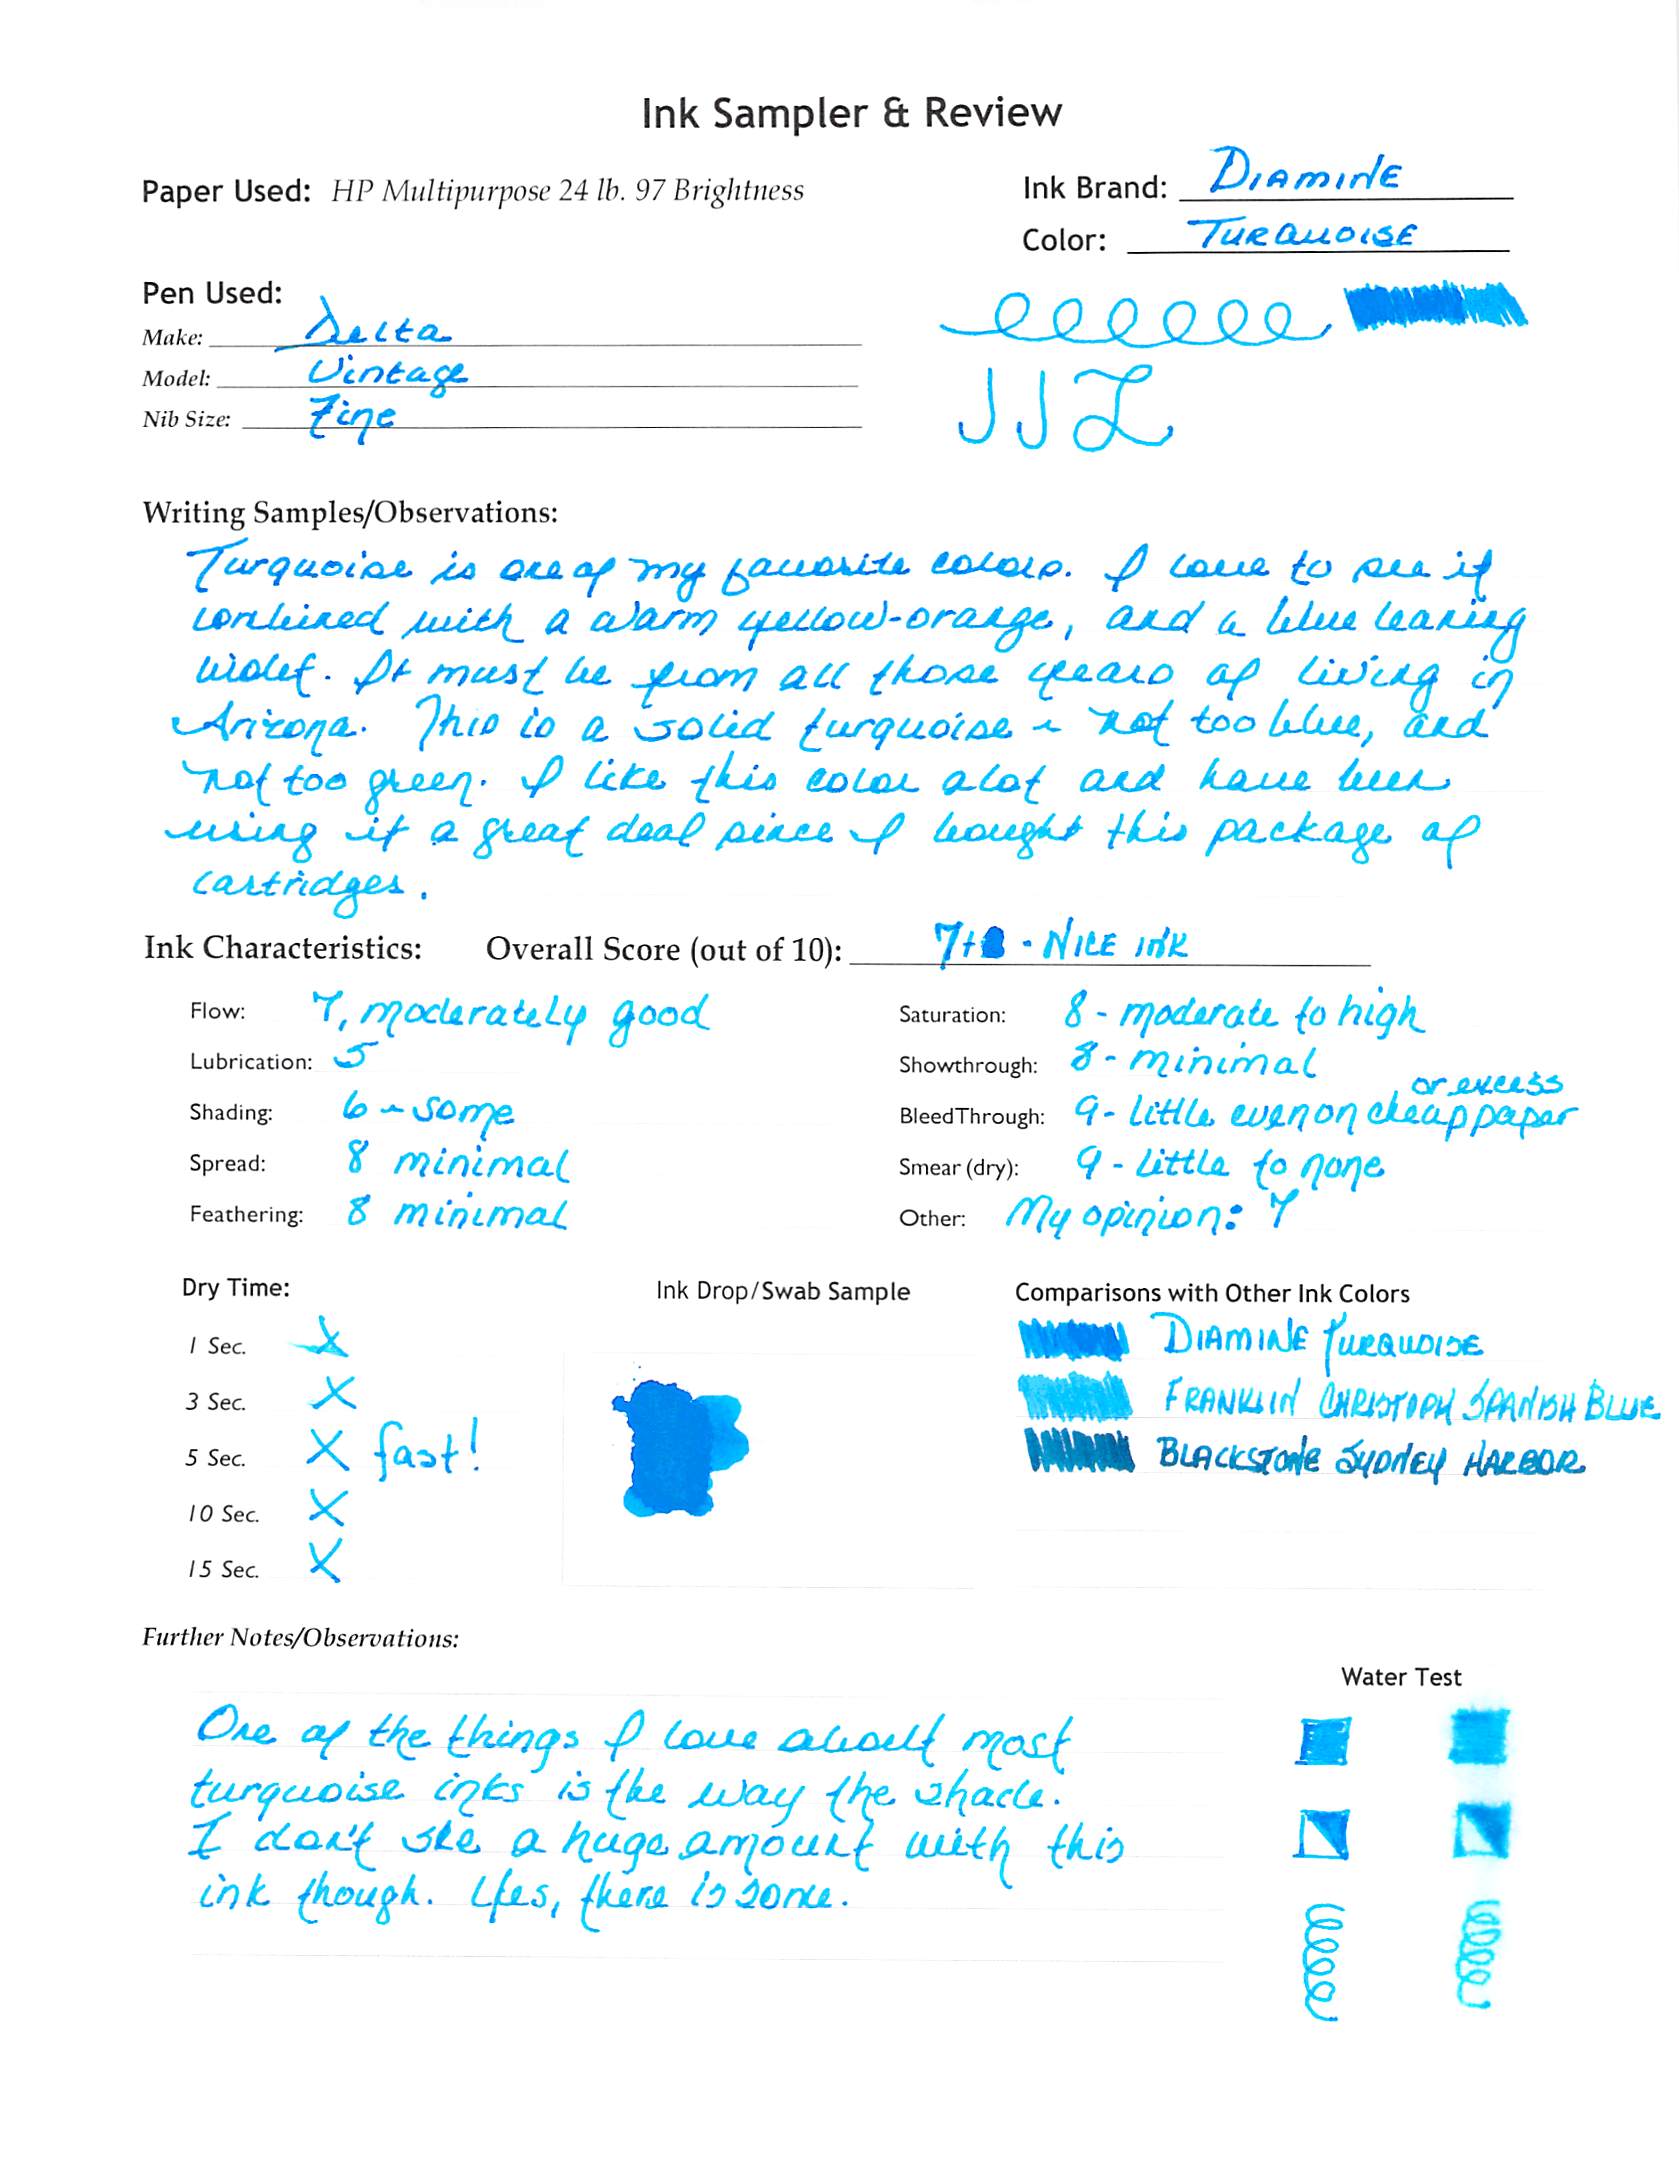 Ink Sampler & Review
Paper Used: HP Multipurpose 24 lb. 97 Brightness
Ink Brand: DIAMINE
Color: TURQUOISE
Pen Used:
Make: Delta
Model: Vintage
Nib Size: Fine
JJL
Writing Samples/Observations:
Turquoise is one of my favorite colors. I love to see it
combined with a warm yellow-orange, and a blue leaning
violet. It must be from all those years of living in
Arizona. This is a solid turquoise - not too blue, and
not too green. I like this color alot and have been
using it a great deal since I bought this package of
cartridges.
Ink Characteristics: Overall Score (out of 10): 7+ - NICE INK
Flow: 7, moderately good
Lubrication: 5
Shading: 6 - some
Spread: 8 minimal
Feathering: 8 minimal
Saturation: 8 - moderate to high
Showthrough: 8 - minimal
or excess
BleedThrough: 9 - little even on cheap paper
Smear (dry): 9 - little to none
Other: My opinion: 7
Dry Time:
1 Sec. X
3 Sec. X
5 Sec. X fast!
10 Sec. X
15 Sec. X
Ink Drop/Swab Sample
Comparisons with Other Ink Colors
DIAMINE TURQUOISE
FRANKLIN CHRISTOPH SPANISH BLUE
BLACKSTONE SYDNEY HARBOR
Further Notes/Observations:
Water Test
One of the things I love about most
turquoise inks is the way the shade.
I don't see a huge amount with this
ink though. Yes, there is some.